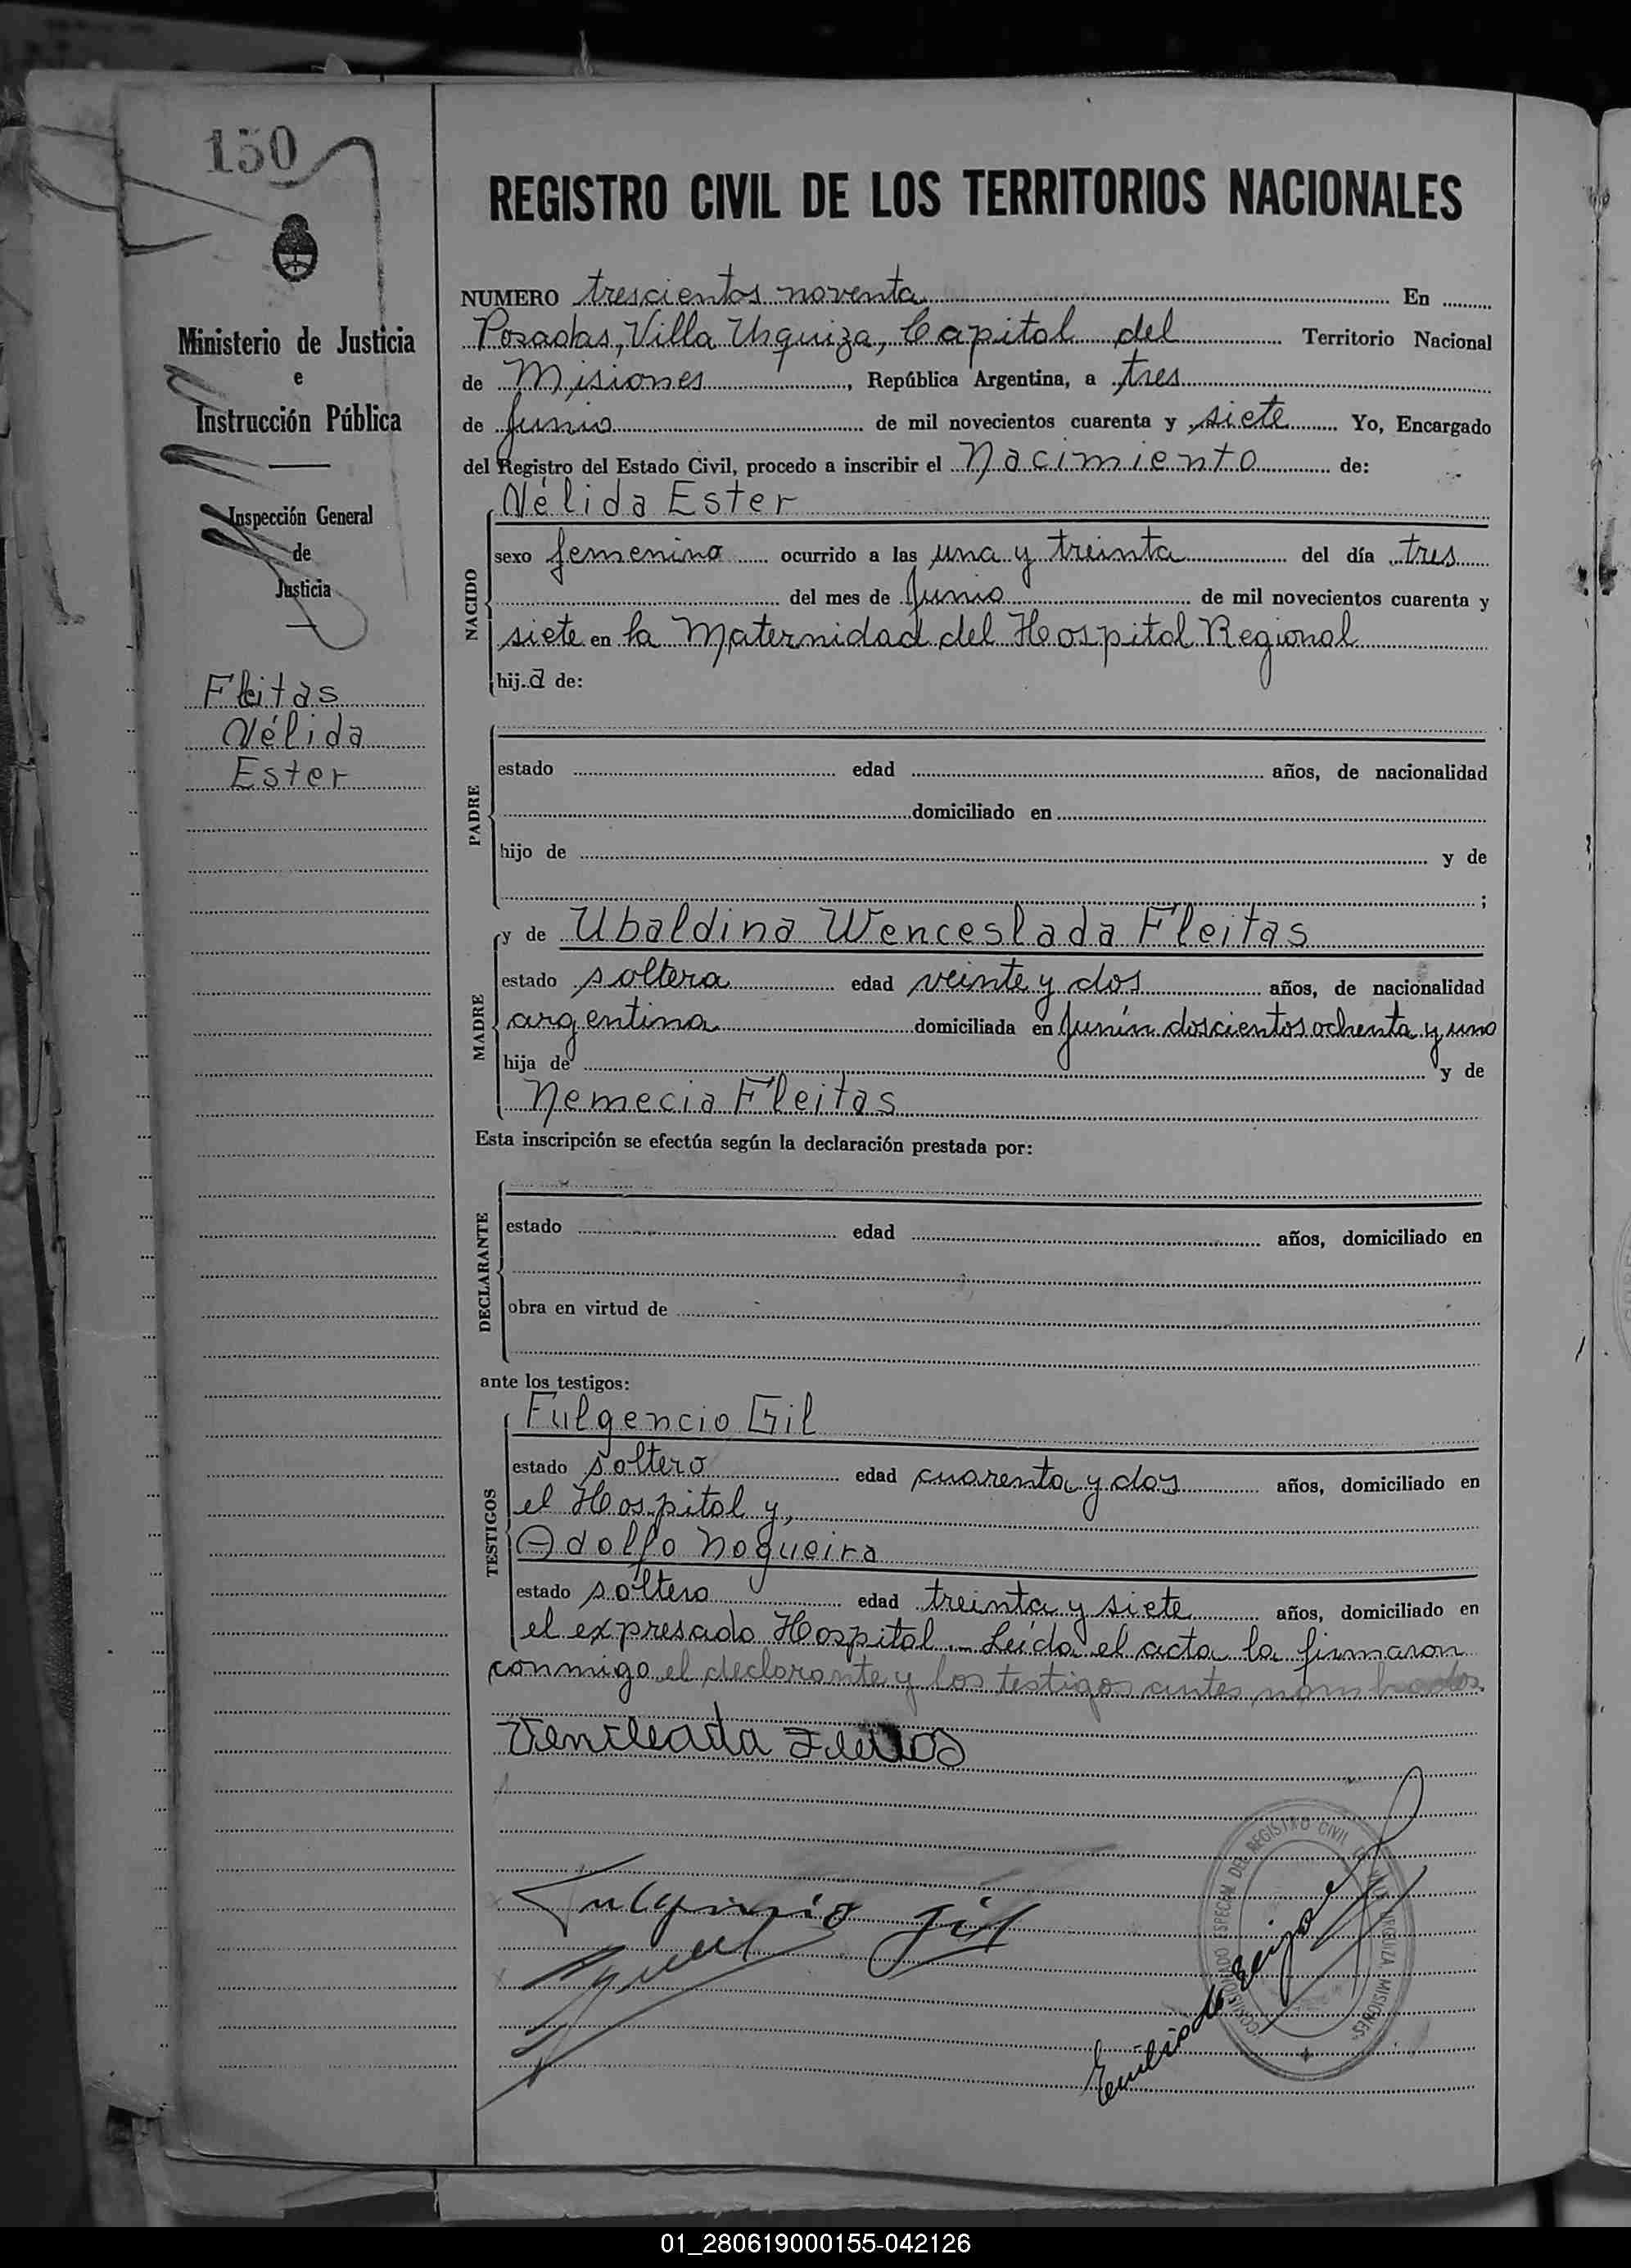 150
Ministerio de Justicia
e
Instrucción Pública
Inspección General
de
Justicia
Fleitas
Nélida
Ester
REGISTRO CIVIL DE LOS TERRITORIOS NACIONALES
NUMERO trescientos noventa En
Posadas, Villa Urquiza, Capital del Territorio Nacional
de Misiones, República Argentina, a tres
de Junio de mil novecientos cuarenta y siete Yo, Encargado
del Registro del Estado Civil, procedo a inscribir el Nacimiento de:
NACIDO
Nélida Ester
sexo femenino ocurrido a las una y treinta del día tres
del mes de Junio de mil novecientos cuarenta y
siete en la Maternidad del Hospital Regional
hij.a de:
PADRE
estado edad años, de nacionalidad
domiciliado en
hijo de y de
;
MADRE
y de Ubaldina Wenceslada Fleitas
estado soltera edad veinte y dos años, de nacionalidad
argentina domiciliada en Junín doscientos ochenta y uno
hija de y de
Nemecia Fleitas
Esta inscripción se efectúa según la declaración prestada por:
DECLARANTE
estado edad años, domiciliado en
obra en virtud de
ante los testigos:
TESTIGOS
Fulgencio Gil
estado soltero edad cuarenta y dos años, domiciliado en
el Hospital y,
Adolfo Nogueira
estado soltero edad treinta y siete años, domiciliado en
el expresado Hospital.- Leída el acta la firmaron
conmigo el declarante y los testigos antes nombrados.
Fulgencio Gil
REGISTRO CIVIL
MISIONES
01_280619000155-042126